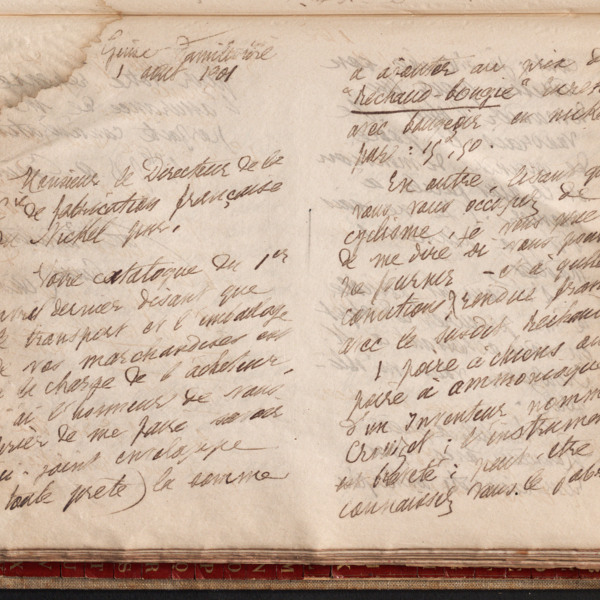 1 août 1901
Monsieur le Directeur de la
de fabrication française
du Nickel pur.
Votre catalogue du 1er
dernier disant que
le transport et l'emballage
de vos marchandises est
à la charge de l'acheteur,
j'ai l'honneur de vous
prier de me faire savoir
joint enveloppe
toute prête) la somme
à ajouter au prix d
"Réchaud-bougie"
avec bougeoir en nicke
pur : 15f,50.
En outre, lisant qu
vous vous occupez de
cyclisme, je vous prie
de me dire si vous pou
me fournir - et à quelle
conditions, rendue fran
avec le susdit réchau
1 poire à chiens ou
poire à ammoniaque
d'un Inventeur nomm
Crouzet ; l'instrumen
breveté ; peut-être
connaissez vous le fabr